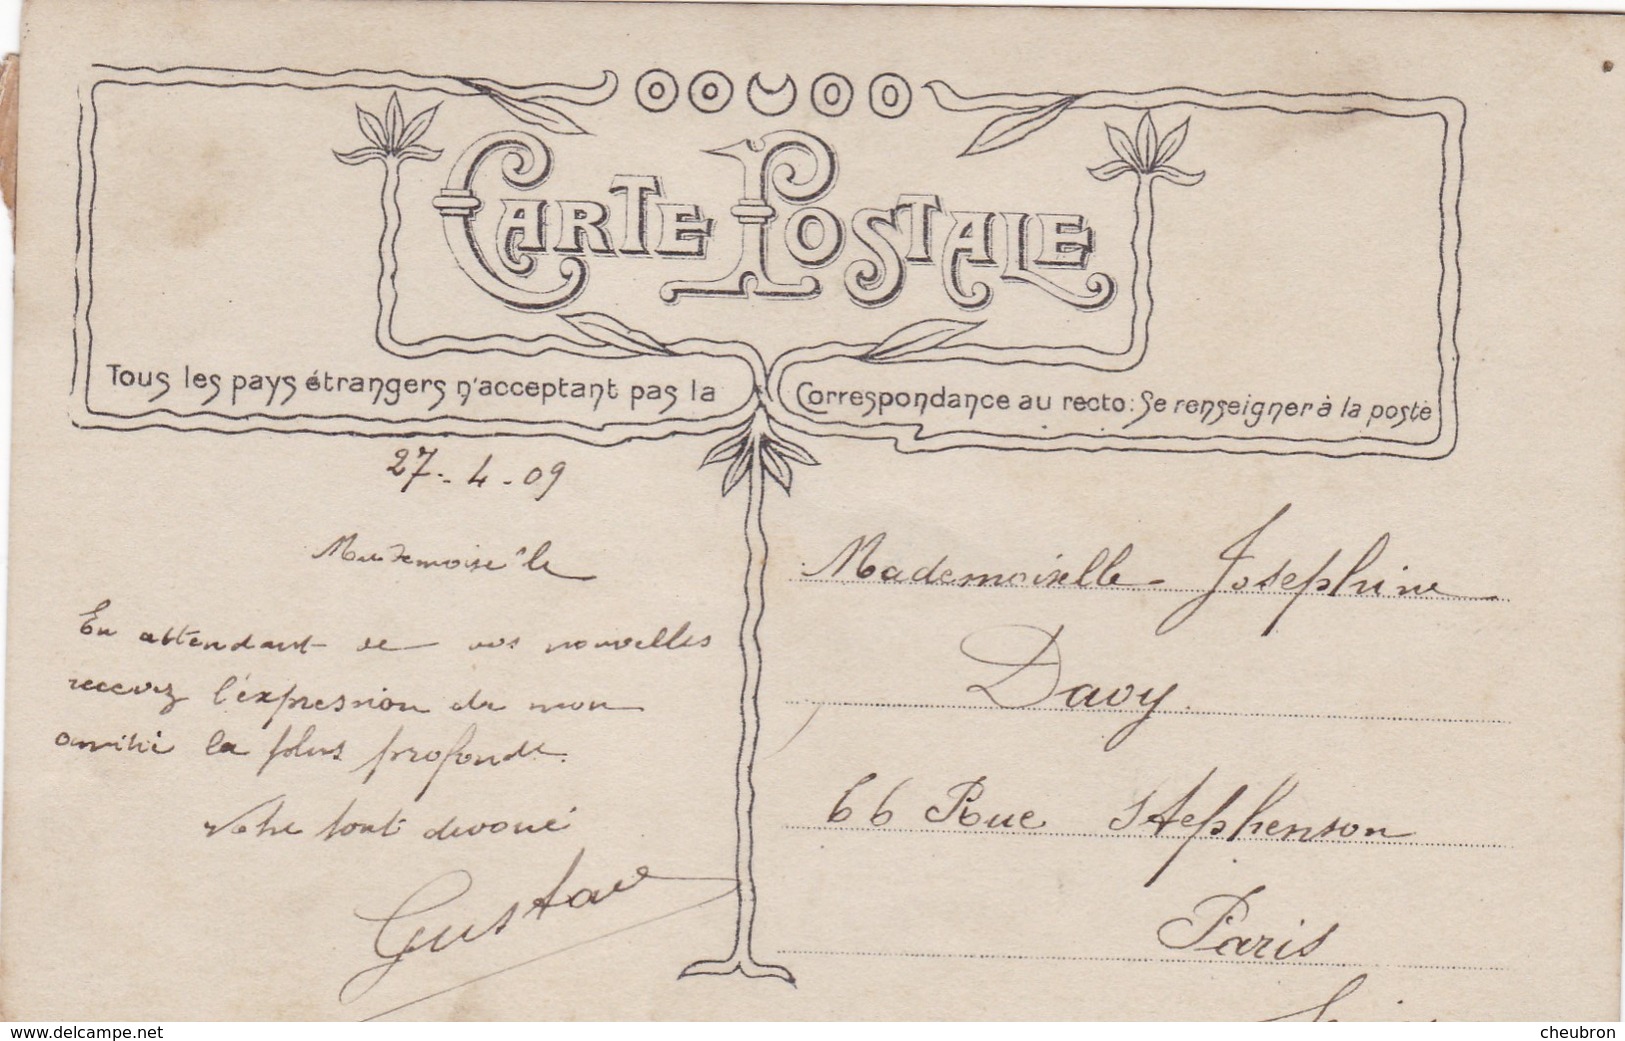 CARTE POSTALE
Tous les pays étrangers n'acceptant pas la Correspondance au recto: Se renseigner à la poste
27-4-09
Mademoiselle
En attendant de vos nouvelles
recevez l'expression de mon
amitié la plus profonde.
Votre tout dévoué
Gustave
Mademoiselle Josephine
Davy
66 Rue Stephenson
Paris
www.delcampe.net
cheubron